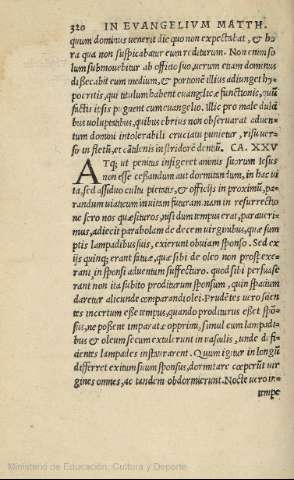 320 IN EVANGELIVM MATTH.
quum dominus uenerit die quo non expectabat, & ho
ra qua non suspicabatur eum rediturum. Non enim so
lum submouebitur ab officio suo, uerum etiam dominus
dissecabit eum medium, & portionē illius adiunget hy-
pocritis, qui titulum habent euangelicæ functionis, quū
factis ipsis pugnent cum euangelio. Illic pro male dulci
bus uoluptatibus, quibus ebrius non obseruarat aduen-
tum domini intolerabili cruciatu punietur, risu uer-
so in fletū, et cātilenis in stridorē dentiū. CA. XXV
ATq; ut penitus infigeret animis suorum Iesus
non esse cessandum aut dormitandum, in hac ui
ta, sed assiduo cultu pietatis, & officijs in proximū, pa-
randum uiaticum in uitam futuram. nam in resurrectio
ne sero nos quæsituros, nisi dum tempus erat, paraueri-
mus, adiecit parabolam de decem uirginibus, quæ sum
ptis lampadibus suis, exierunt obuiam sponso. Sed ex
ijs quinq; erant fatuæ, quæ sibi de oleo non prospexe-
rant, in sponsi aduentum suffecturo. quod sibi persuase
rant non ita subito proditurum sponsum, quin spatium
daretur alicunde comparandi olei. Prudētes uero scien
tes incertum esse tempus, quando proditurus esset spō-
sus, ne possent imparatæ supprimi, simul cum lampadi-
bus & oleum secum extulerunt in uasculis, unde defi-
cientes lampades instaurarent. Quum igitur in longū
differret exitum suum sponsus, dormitare cœperūt uir
gines omnes, ac tandem obdormierunt. Nocte uero in-
tempe
Ministerio de Educación, Cultura y Deporte